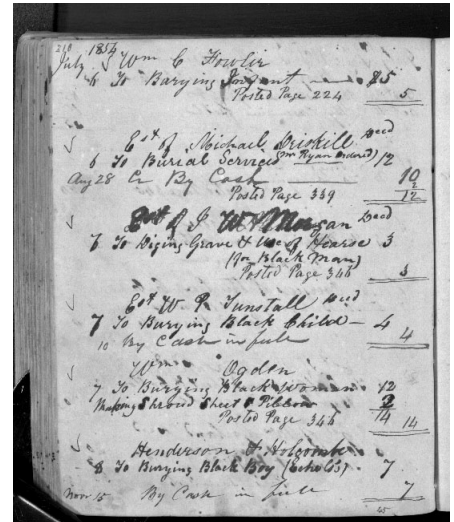 218 1854
July Wm C Fowler
6 To Burying Infant $5
Posted Page 224 5
Est of Michael Driskill Decd
6 To Burial Services (Wm Ryan Ordered) 12
Aug 28 Cr By Cash 10
2
Posted Page 339 12
Est of J W Morgan Decd
6 To Diging Grave & Use of Hearse 3
(for Black Man)
Posted Page 346 3
Est W P Tunstall Decd
7 To Burying Black Child 4
10 By Cash in full 4
Wm Ogden
7 To Burying Black Woman 12
Making Shroud Sheet & Ribbon 2
14
Posted Page 344 14
Henderson & Holcombe
8 To Burying Black Boy (Echols) 7
Nov 15 By Cash in full 7